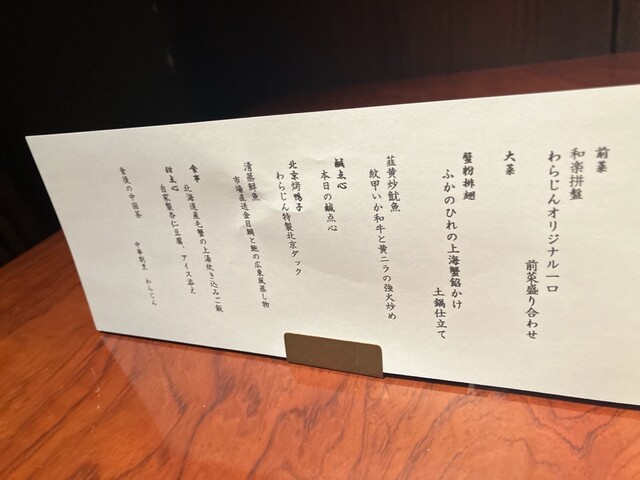 前菜
和楽拼盤
わらじんオリジナル一口
前菜盛り合わせ
大菜
蟹粉排翅
ふかのひれの上海蟹餡かけ
土鍋仕立て
韮黄炒魷魚
紋甲いか和牛と黄ニラの強火炒め
鹹点心
本日の鹹点心
北京烤鴨子
わらじん特製北京ダック
清蒸鮮魚
市場直送金目鯛と鮑の広東風蒸し物
食事
北海道産毛蟹の上海炊き込みご飯
甜点心
自家製杏仁豆腐、アイス添え
食後の中国茶
中華割烹 わらじん